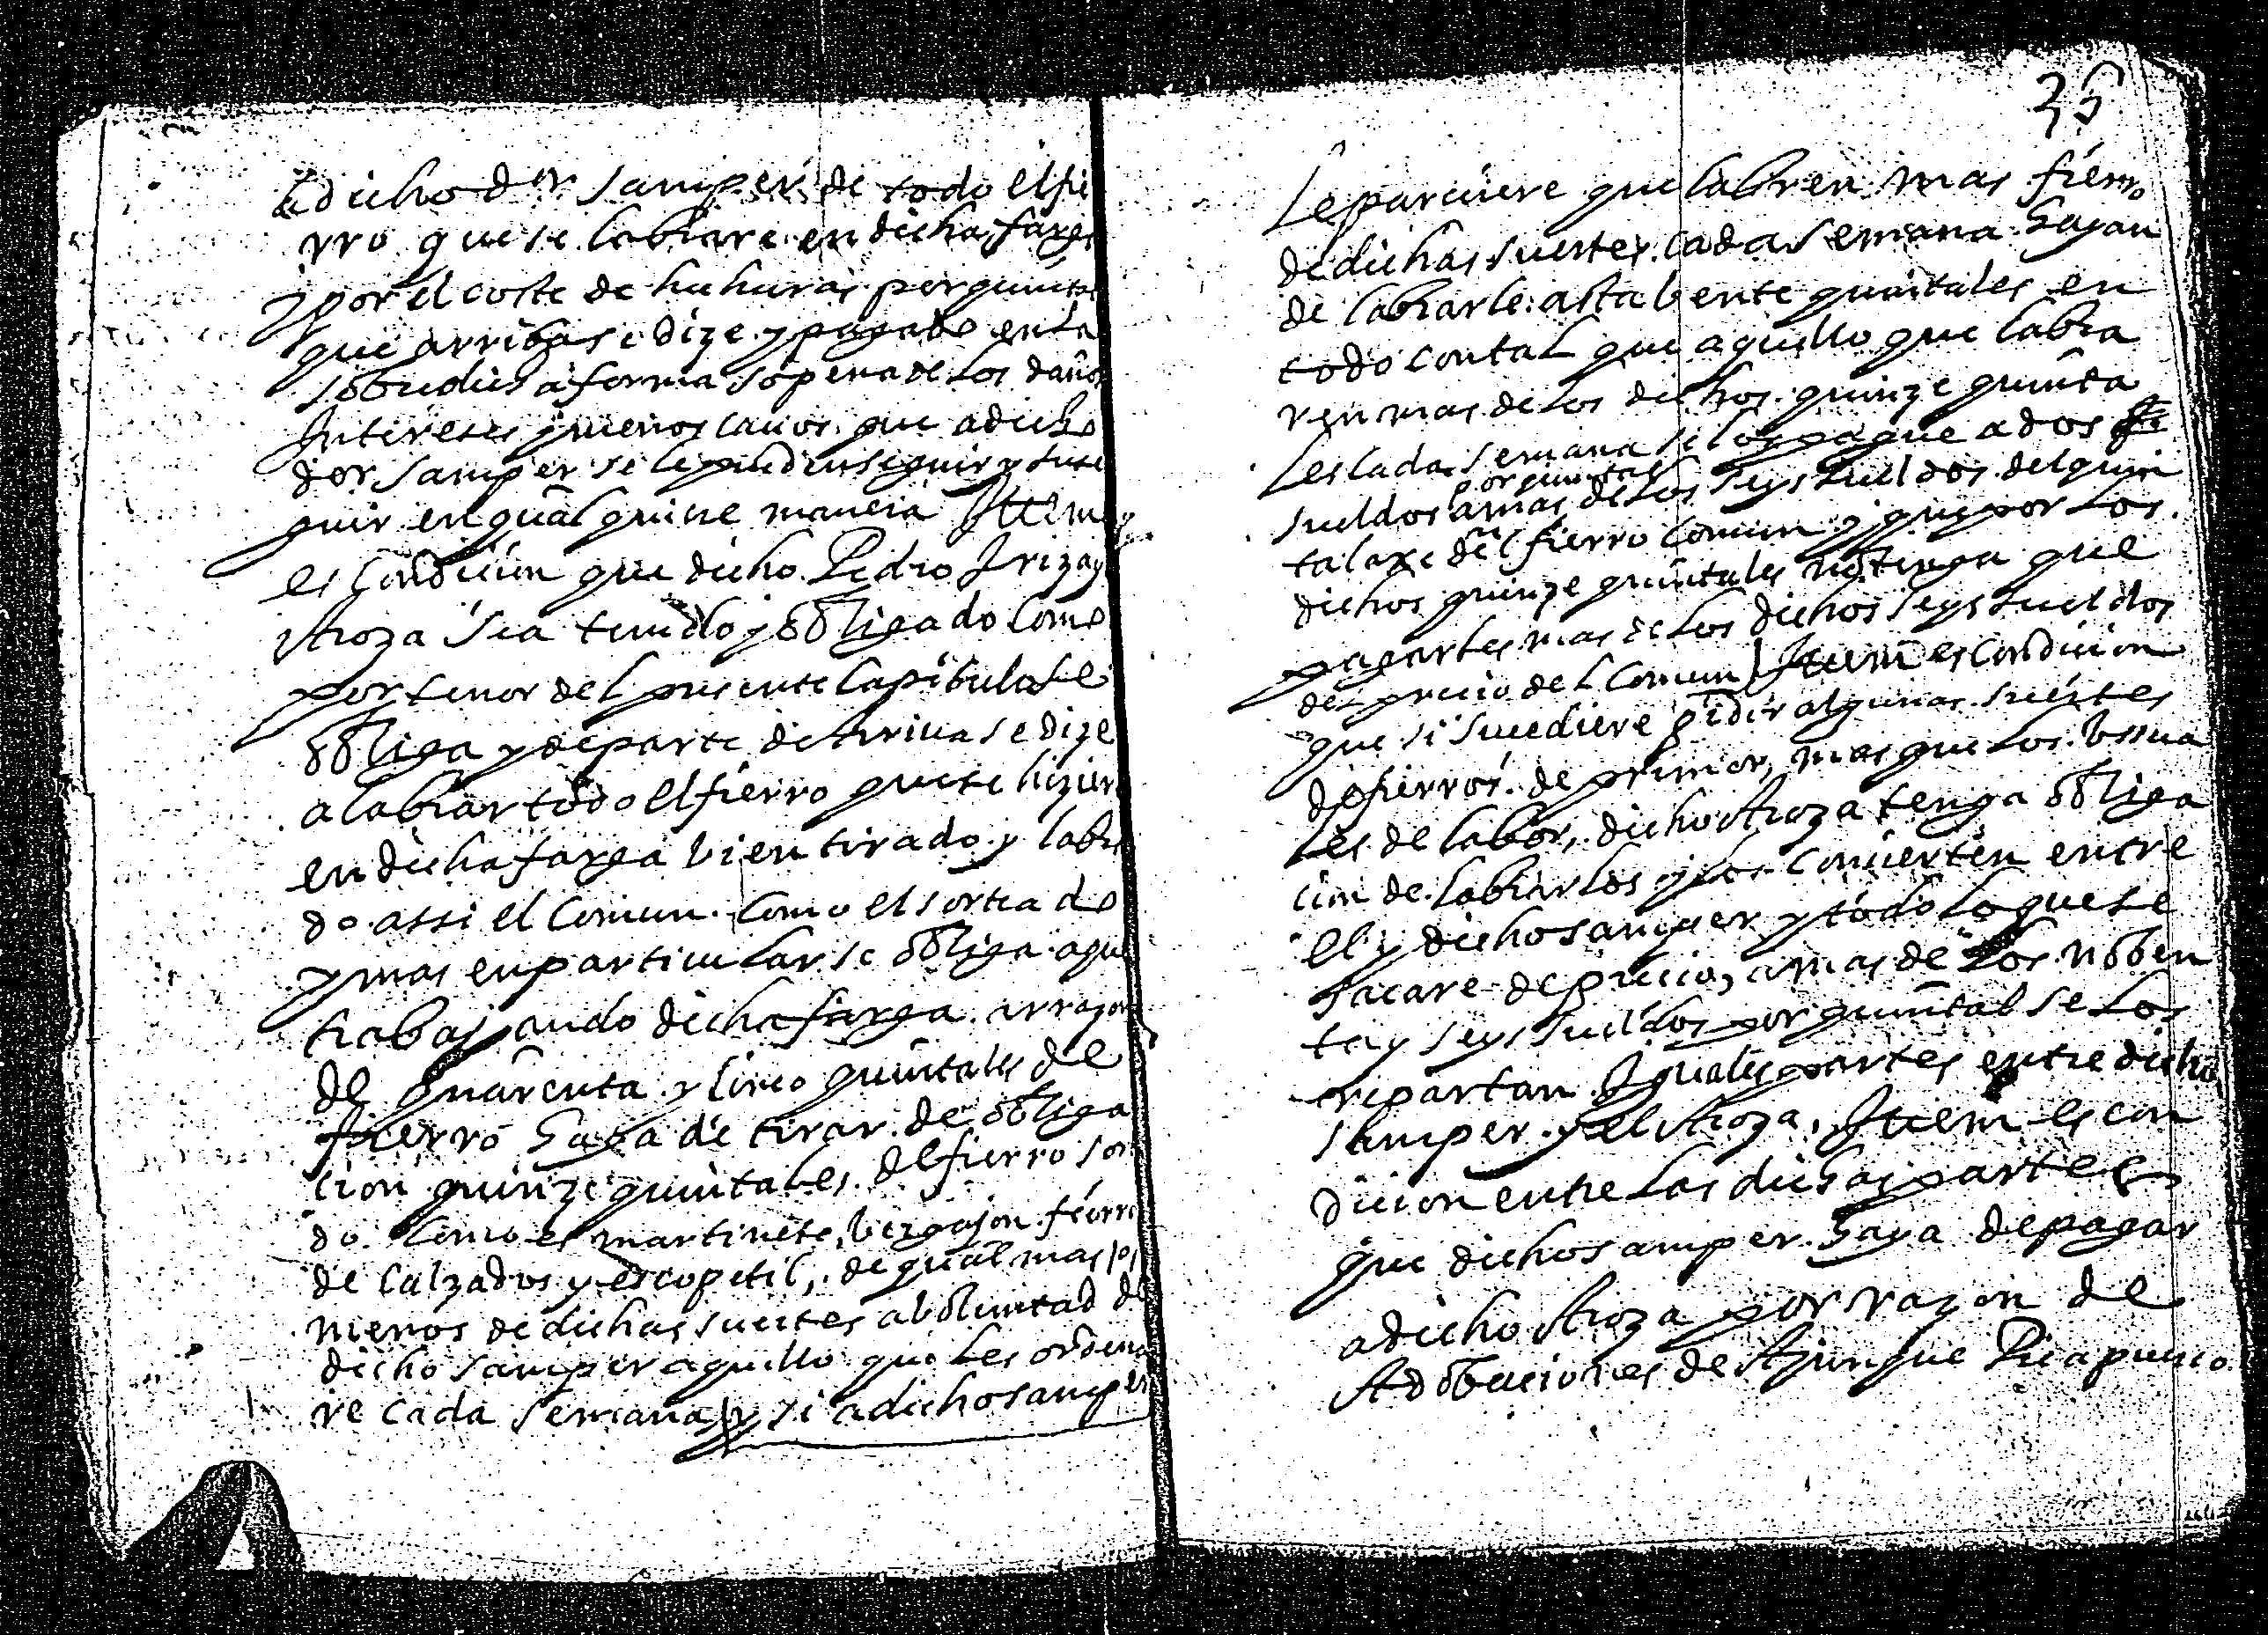 a dicho dor Samper de todo el fie
rro que se labrare en dicha farga
y por el coste de huhuras por quinta
que arriba se dize y pagado en la
sobredicha forma so pena de los daños
Intereses y menos cauos que a dicho
dor Samper se le pudu seguir y subse
guir en qualquiere maneia Item
es Condicion que dicho Pedro Irizag
Aroza sia tenido y obligado Como
por tenor del presente Capitula se
obliga y de parte de Arriua se dize
a labrar todo el fierro que se hizier
en dicha farga bien tirado y labra
do assi el Comun Como el sortea do
y mas en particular se obliga aque
trabajando dicha farga arrazon
de quarenta y Cinco quintales de
fierro haya de tirar de obliga
cion quinze quintales de fierro sor
do Como es martinete, bergajon fierro
de Calzados y escopetil, de qual mas o
menos de dichas suertes a boluntad de
dicho Samper aquillo que les ordena
re Cada Semana y si a dicho samper
35
Le pareciere que labren mas fierro
de dichas suertes cada Semana hayan
de labrarle asta bente quintales en
todo con tal que aquello que labra
ren mas de los dichos quinze quinta
Les Cada Semana se los pague a dos
por quintal
sueldos amas de los seys sueldos del quin
talaxe del fierro Comun y que por Los
dichos quinze quintales no tenga que
pagarles mas de los dichos seys sueldos
del precio del Comun Item es Condicion
que si sucediere pidir algunas suertes
de fierros de primor, mas que los ussua
les de labor, dicho Aroza tenga obliga
cion de labrarlos y los Concierten entre
el y dicho samper y todo lo que se
sacare de precio, amas de los noben
ta y seys sueldos por quintal se los
repartan Iguales partes entre dicho
samper y el Aroza, Item es con
dicion entre las dichas partes
que dicho samper haya de pagar
a dicho Aroza por razon de
Adobaciones de Ajunque Pica puerco